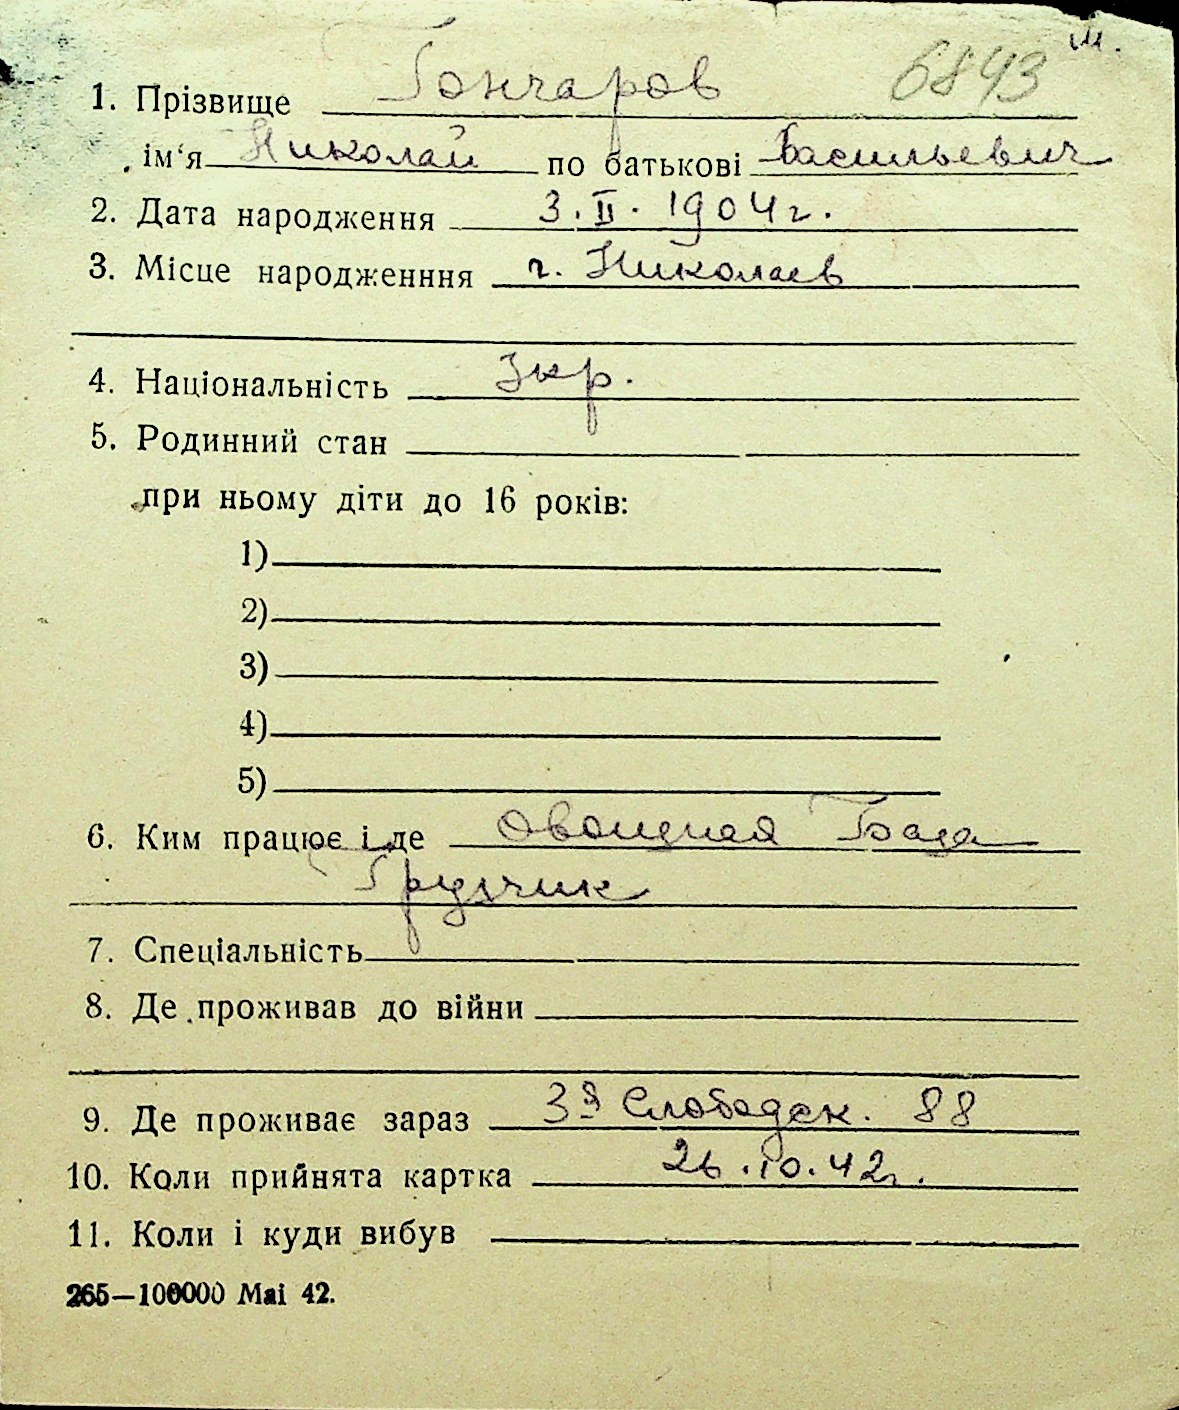 6843 м.
1. Прізвище Гончаров
ім‘я Николай по батькові Васильевич
2. Дата народження 3. II. 1904 г.
3. Місце народженння г. Николаев
4. Національність Укр.
5. Родинний стан
при ньому діти до 16 років:
1)
2)
3)
4)
5)
6. Ким працює і де Овощная База
Грузчик
7. Спеціальність
8. Де проживав до війни
9. Де проживає зараз 3я Слободск. 88
10. Коли прийнята картка 26.10.42 г.
11. Коли і куди вибув
265—100000 Mai 42.